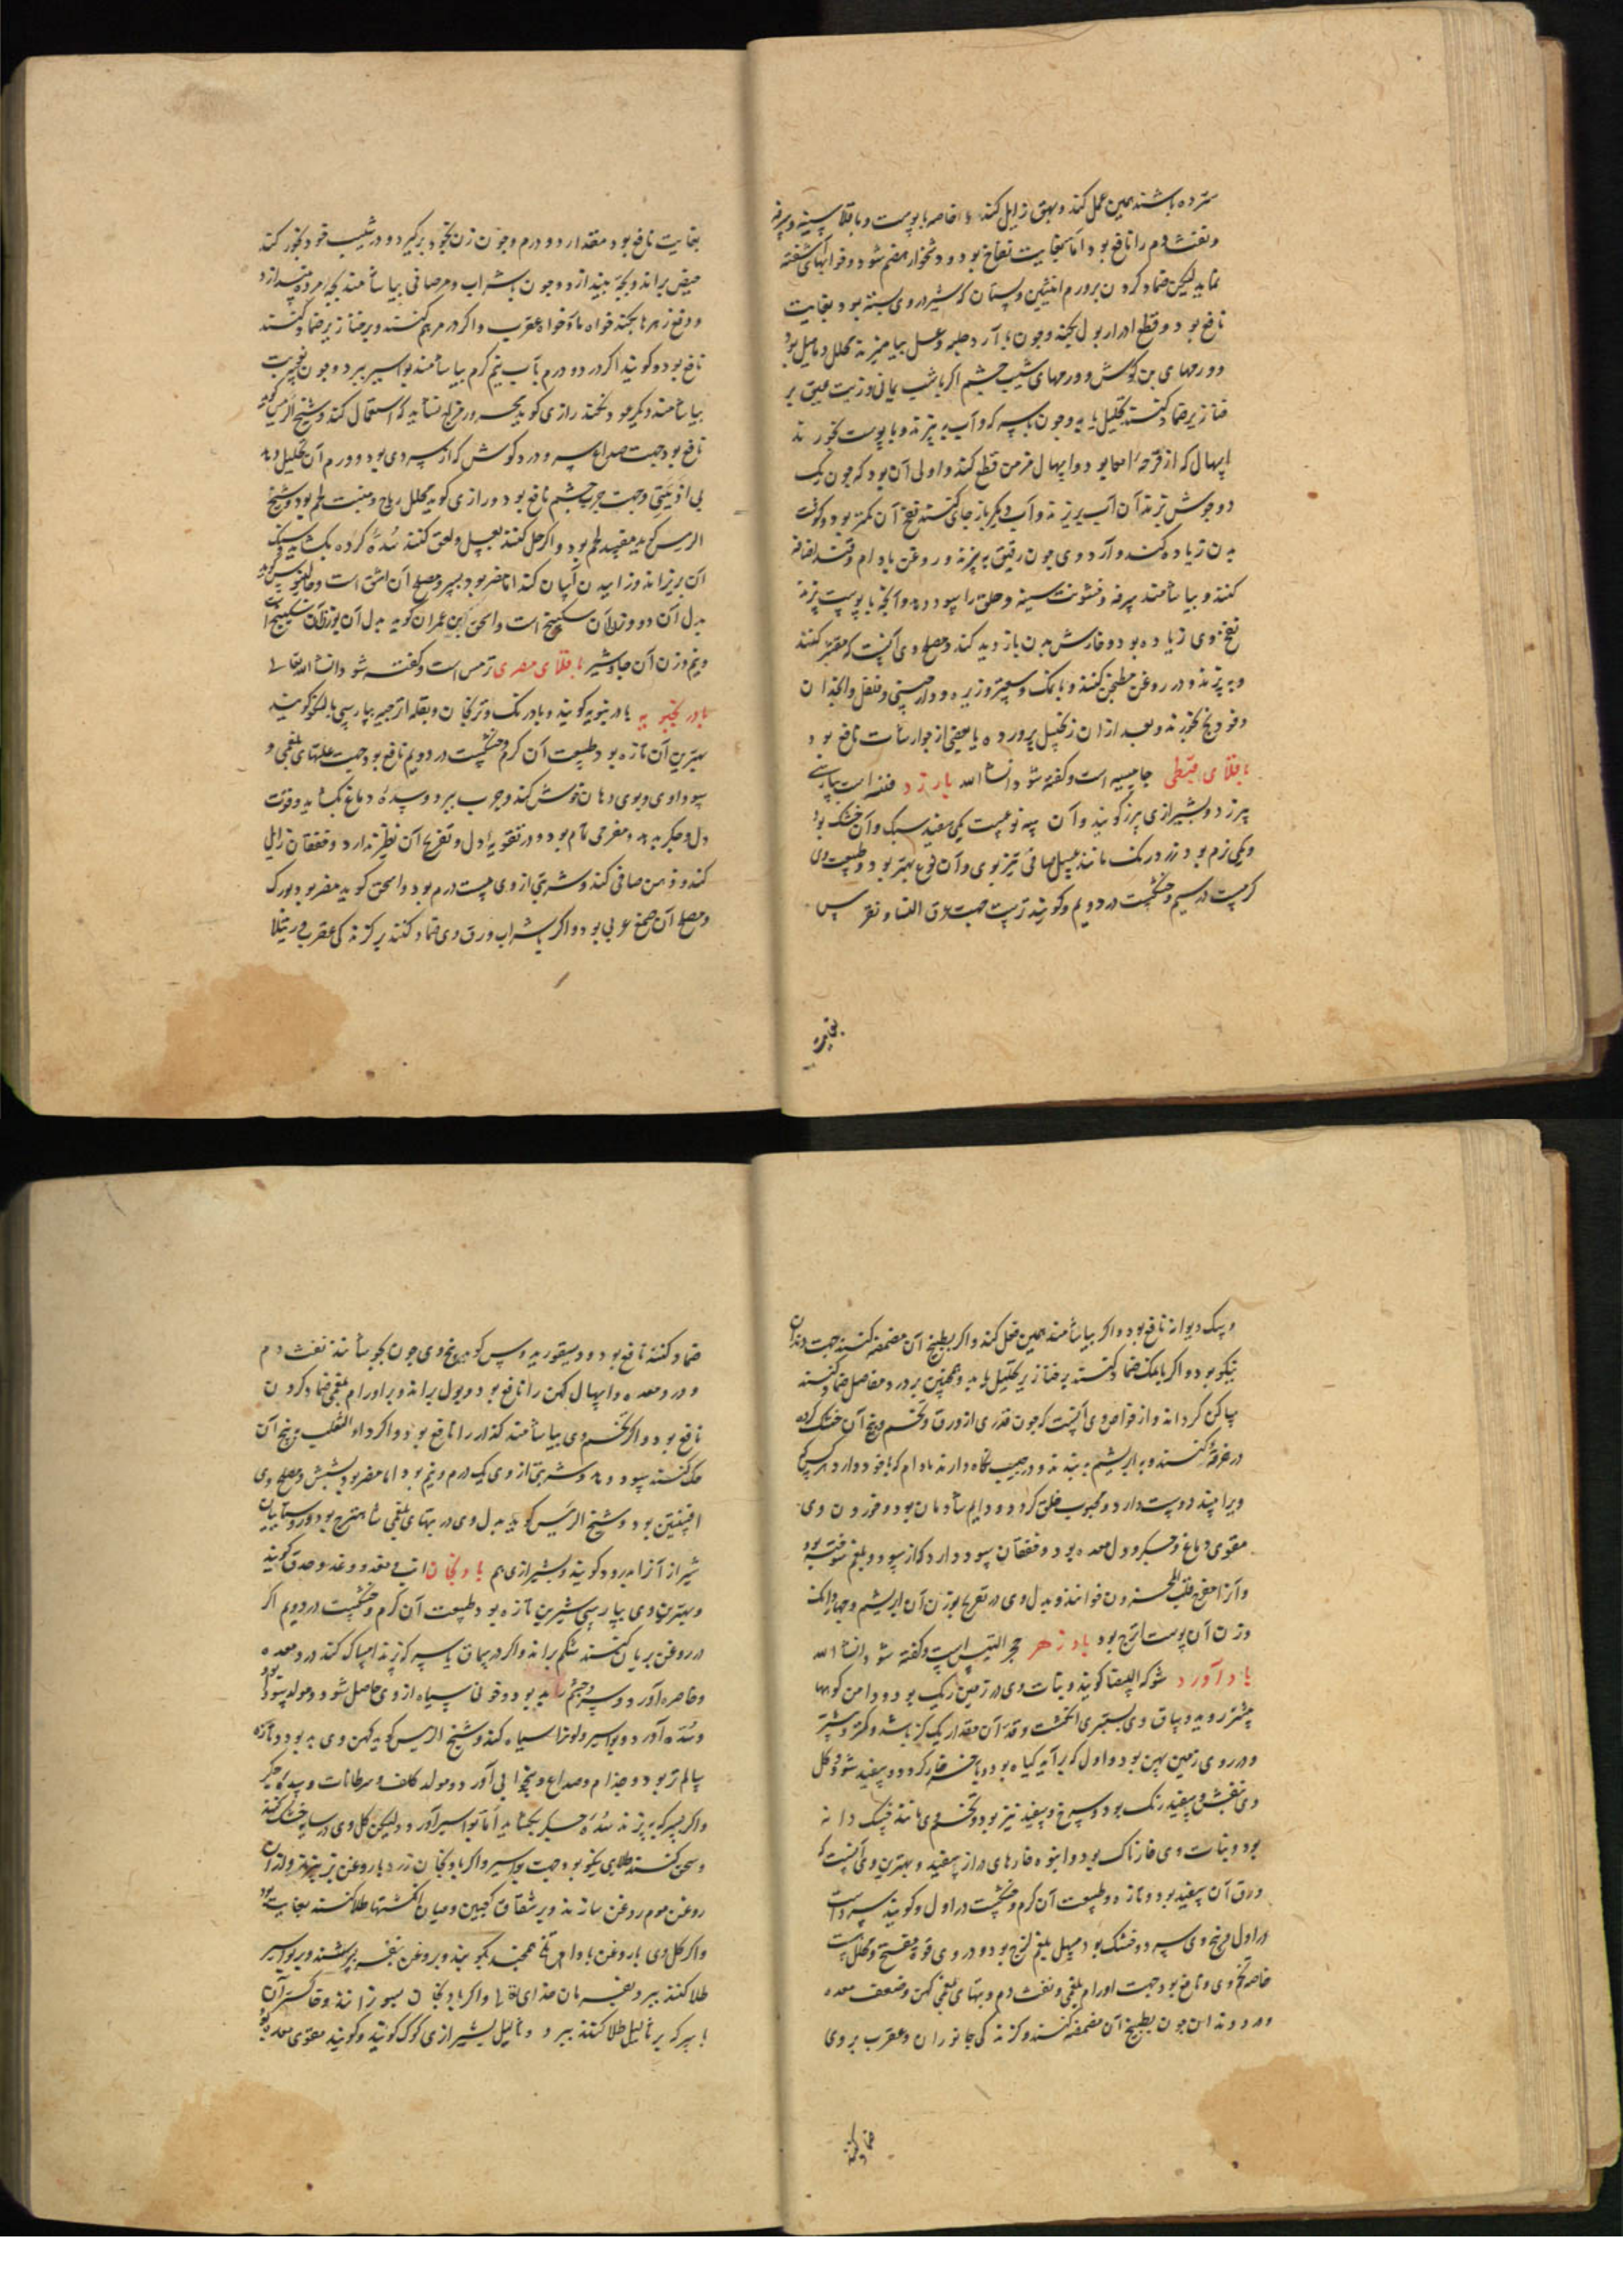 سترده باشند همین عمل کند و بهق زایل کند خاصه با پوست و باقلا سینه و سرفه
و نفث دم را نافع بود اما بغایت نفاخ بود و دشخوار هضم شود و خوابهای آشفته
نماید لیکن ضماد کردن بر ورم انثیین و پستان که شیر در وی بسته بود بغایت
نافع بود و قطع ادرار بول بکند و چون با آرد حلبه و عسل بیامیزند محلل دمامیل بود
و ورمهای بن گوش و ورمهای شیب چشم اگر با شب یمانی و زیت عتیق بر
خنازیر ضماد کنند تحلیل یابد و چون با سرکه و آب بپزند و با پوست بخورند
اسهال که از قرحه امعا بود و اسهال مزمن قطع کند و اولی آن بود که چون یک
دو جوش بزند آن آب بریزند و آب دیگر باز جای کنند نفخ آن کمتر بود و گوشت
بدن زیاده کند و آرد وی چون رقیق بپزند و روغن بادام و قند اضافه
کنند و بیاشامند سرفه و خشونت سینه و حلق را سود دهد و آنچه با پوست پزند
نفخ وی زیاده بود و خارش بدن بازدید کند و مصلح وی آنست که مقشر کنند
و بپزند و در روغن مطجن کنند و با نمک و سعتر و زیره و دارچینی و فلفل و انجدان
و فودنج بخورند و بعد از آن زنجبیل پرورده یا بعضی از جوارشات نافع بود
باقلای قبطی جامسه است و گفته شود انشاالله بارزد قنه است بپارسی
بیرزد و بشیرازی بیرز گویند و آن سه نوعست یکی سفید سبک و آن خشک بود
و یکی نرم بود زرد رنگ مانند عسل صافی تیز بوی و آن نوع بهتر بود و طبیعت وی
گرمست در سیم و خشکست در دویم و گویند ترست جهت عرق النسا و نقرس
بغایت
بغایت نافع بود مقدار دو درم و چون زن بخود برگیرد و در شیب خود بخور کند
حیض براند و بچه بیندازد و چون با شراب و مر صافی بیاشامند بچه مرده بیندازد
و دفع زهرها بکند خواه مار و خواه عقرب و اگر در مرهم کنند و بر خنازیر ضماد کنند
نافع بود و گویند اگر دو درم بآب نیم گرم بیاشامند بواسیر ببرد و چون نوبت
بیاشامند دیگر عود نکند رازی گوید محرور مزاج نشاید که استعمال کند و شیخ الرئیس گوید
نافع بود جهت صداع سرد و درد گوش که از سردی بود و ورم آن تحلیل دهد
بی اذیتی و جهت جرب چشم نافع بود و رازی گوید محلل ریاح و منبت لحم بود و شیخ
الرئیس گوید مفسد لحم بود و اگر حل کنند بعسل و لعق کنند سده گرده بگشاید و سنگ
آن بریزاند و زاییدن آسان کند اما مضر بود بسر و مصلح آن اشق است و جالینوس گوید
بدل آن دو وزن آن سکبینج است و اسحق ابن عمران گوید بدل آن بوزن آن سکبینج است
و نیم وزن آن جاوشیر باقلای مصری ترمس است و گفته شود انشاالله تعالی
بادرنجبویه بادرنبویه گویند و بادرنک و ترنجان و بقله اترجیه بپارسی بالنکو گویند
بهترین آن تازه بود و طبیعت آن گرم و خشکست در دویم نافع بود جهت علتهای بلغمی و
سوداوی و بوی دهان خوش کند و جرب ببرد و سده دماغ بگشاید و قوت
دل و جگر بدهد و مفرحی تمام بود و در تقویه دل و تفریح آن نظیر ندارد و خفقان زایل
کند و ذهن صافی کند و شربتی از وی بیست درم بود و اسحق گوید مضر بود بورک
و مصلح آن صمغ عربی بود و اگر با شراب ورق وی ضماد کنند بر گزندگی عقرب و رتیلا
و سگ دیوانه نافع بود و اگر بیاشامند همین فعل کند و اگر بطبیخ آن مضمضه کنند جهت دندان
نیکو بود و اگر با نمک ضماد کنند بر خنازیر تحلیل یابد و همچنین بر درد مفاصل ضماد کنند
ساکن گرداند و از خواص وی آنست که چون قدری از ورق و تخم و بیخ آن خشک کرده
در خرقه کنند و به ابریشم ببندند و در جیب نگاه دارند مادام که با خود دارد هر کس که
ویرا بیند دوست دارد و محبوب خلق گردد و دایم شادمان بود و خوردن وی
مقوی دماغ و جگر و دل و معده بود و خفقان سود دارد که از سودا و بلغم سوخته بود
و آنرا مفرح قلب المحزون خوانند و بدل وی در تفریح بوزن آن ابریشم و چهار دانک
وزن آن پوست اترج بود بادزهر حجر التیس است و گفته شود انشاالله
بادآورد شوکه البیضا گویند و نبات وی در زمین ریگ بود و دامن کوهها
بیشتر روید و ساق وی بسطبری انگشت و قد آن مقدار یک گز باشد و کمتر و بیشتر
و در روی زمین پهن بود و اول که برآید گیاه بود و باخر خار گردد و سفید شود و گل
وی بنفش و سفید رنگ بود و سرخ و سفید نیز بود و تخم وی مانند خسک دانه
بود و نبات وی خارناک بود و انبوه خارهای دراز سفید و بهترین وی آنست که
ورق آن سفید بود و تازه و طبیعت آن گرم و خشکست در اول و گویند سرد است
در اول و بیخ وی سرد و خشک بود مسهل بلغم لزج بود و در وی قوه مفتح و محلل است
خاصه تخم وی و نافع بود جهت اورام بلغمی و نفث دم و تبهای بلغمی کهن و ضعف معده
و درد دندان چون بطبیخ آن مضمضه کنند و گزندگی جانوران و عقرب بر وی
ضماد کنند
ضماد کنند نافع بود و دیسقوریدوس گوید بیخ وی چون بجوشانند نفث دم
و درد معده و اسهال کهن را نافع بود و بول براند و بر اورام بلغمی ضماد کردن
نافع بود و اگر تخم وی بیاشامند کزاز را نافع بود و اگر داء الثعلب به بیخ آن
حک کنند سود دهد و شربتی از وی یک درم و نیم بود اما مضر بود بشش و مصلح وی
افسنتین بود و شیخ الرئیس گوید بدل وی در تبهای بلغمی شاهترج بود و روستاییان
شیراز آنرا بدرود گویند و بشیرازی هم بادنجان انب و مغد و وغد و حدق گویند
و بهترین وی بپارسی شیرین تازه بود و طبیعت آن گرم و خشکست در دویم اگر
در روغن بریان کنند شکم براند و اگر در میان سرکه پزند امساک کند درد معده
و خاصره آورد و سر و چشم را بد بود و خونی سیاه از وی حاصل شود و مولد سودا بود
و سده آورد و بواسیر و لونرا سیاه کند و شیخ الرئیس گوید کهن وی بد بود و تازه
سالم تر بود و جذام و صداع و بیخوابی آورد و مولد کلف و سرطانات و سده جگر
و اگر بسرکه بپزند سده جگر بگشاید اما بواسیر آورد و لیکن گل وی در سایه خشک کنند
و سحق کنند طلایی نیکو بود جهت بواسیر و اگر بادنجان زرد با روغن بزر بپزند و از آن
روغن موم روغن سازند و بر شقاق کعبین و میان انگشتها طلا کنند بغایت نافع بود
و اگر گل وی با روغن بادام تلخ بکوبند و بروغن بنفشه بسرشند و بر بواسیر
طلا کنند ببرد بفرمان خدای تعالی و اگر بادنجان بسوزانند و خاکستر آن
بسرکه بر ثالیل طلا کنند ببرد و ثالیل بشیرازی کوک گویند و گویند مقوی معده بود